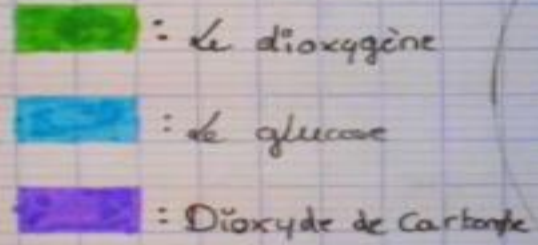 : Le dioxygène
: Le glucose
: Dioxyde de Carbone